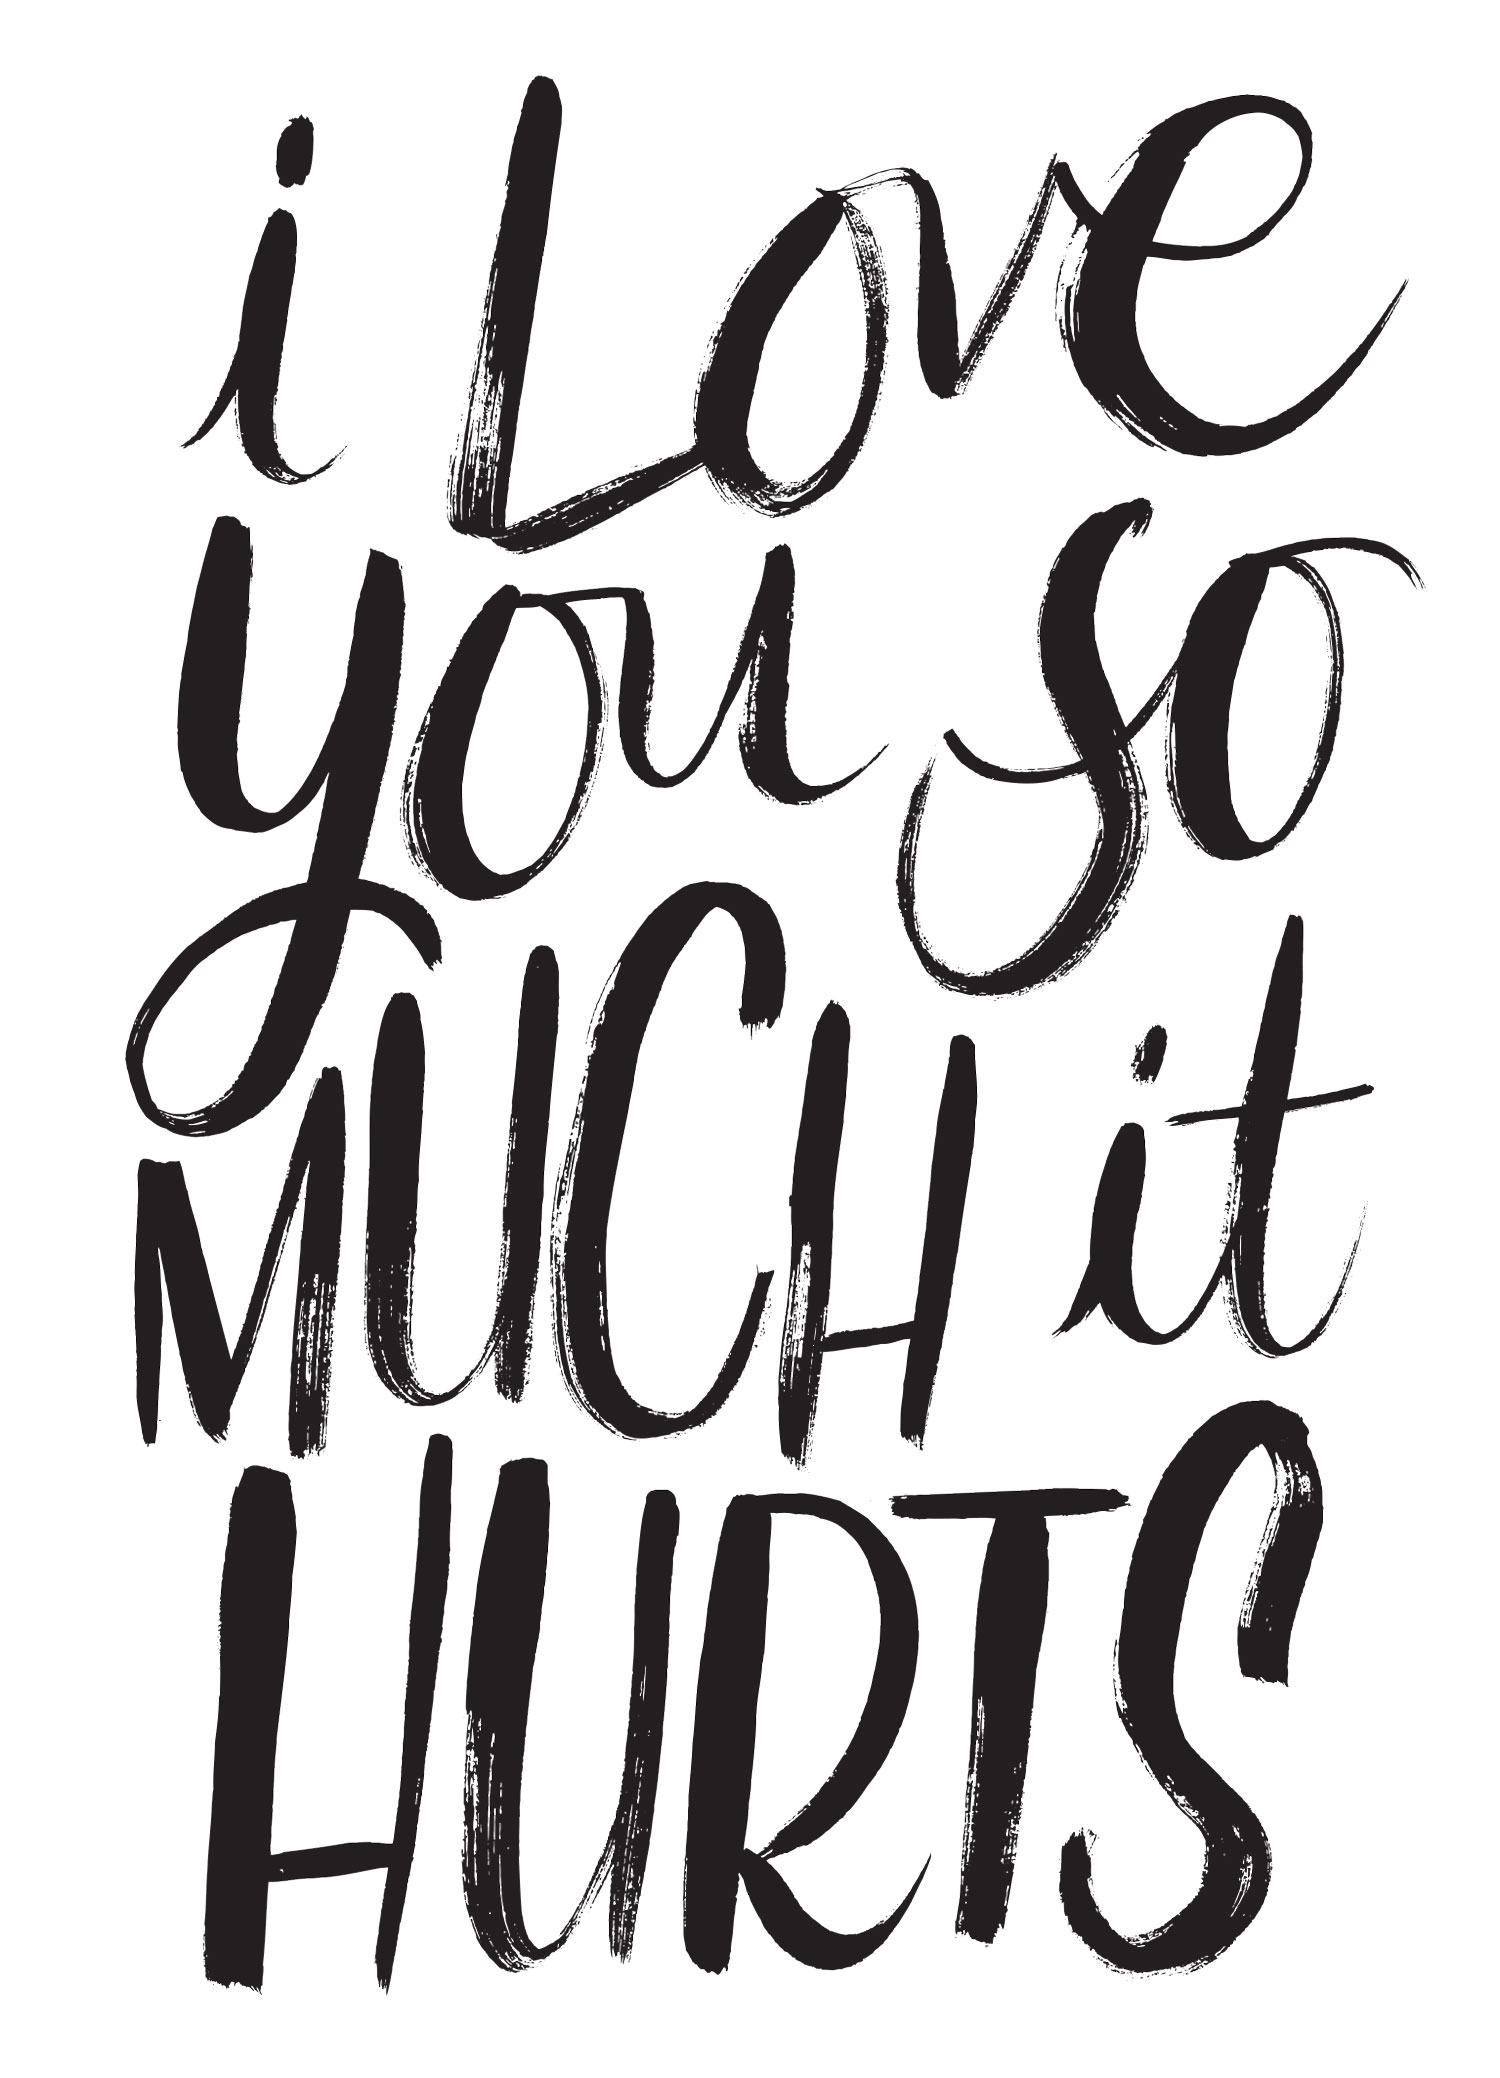 i Love
you so
MUCH it
HURTS